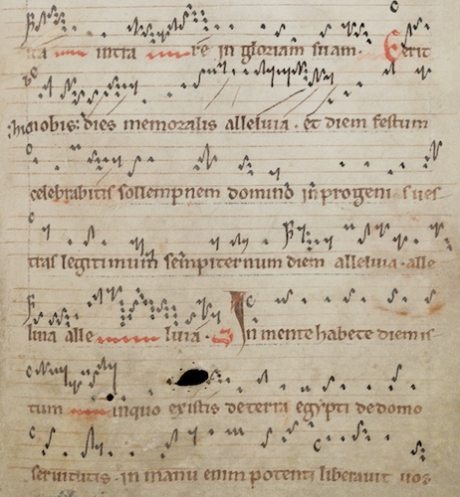 ita intra re in gloriam suam. Erit
hic uobis: dies memoralis alleluia. et diem festum
celebrabitis sollempnem domino in progeni suis
tias legitimum sempiternum diem alleluia. alle
luia alle luia. In mente habete diem is
tum in quo existis de terra egypti de domo
seruitutis. in manu enim potenti liberauit uos